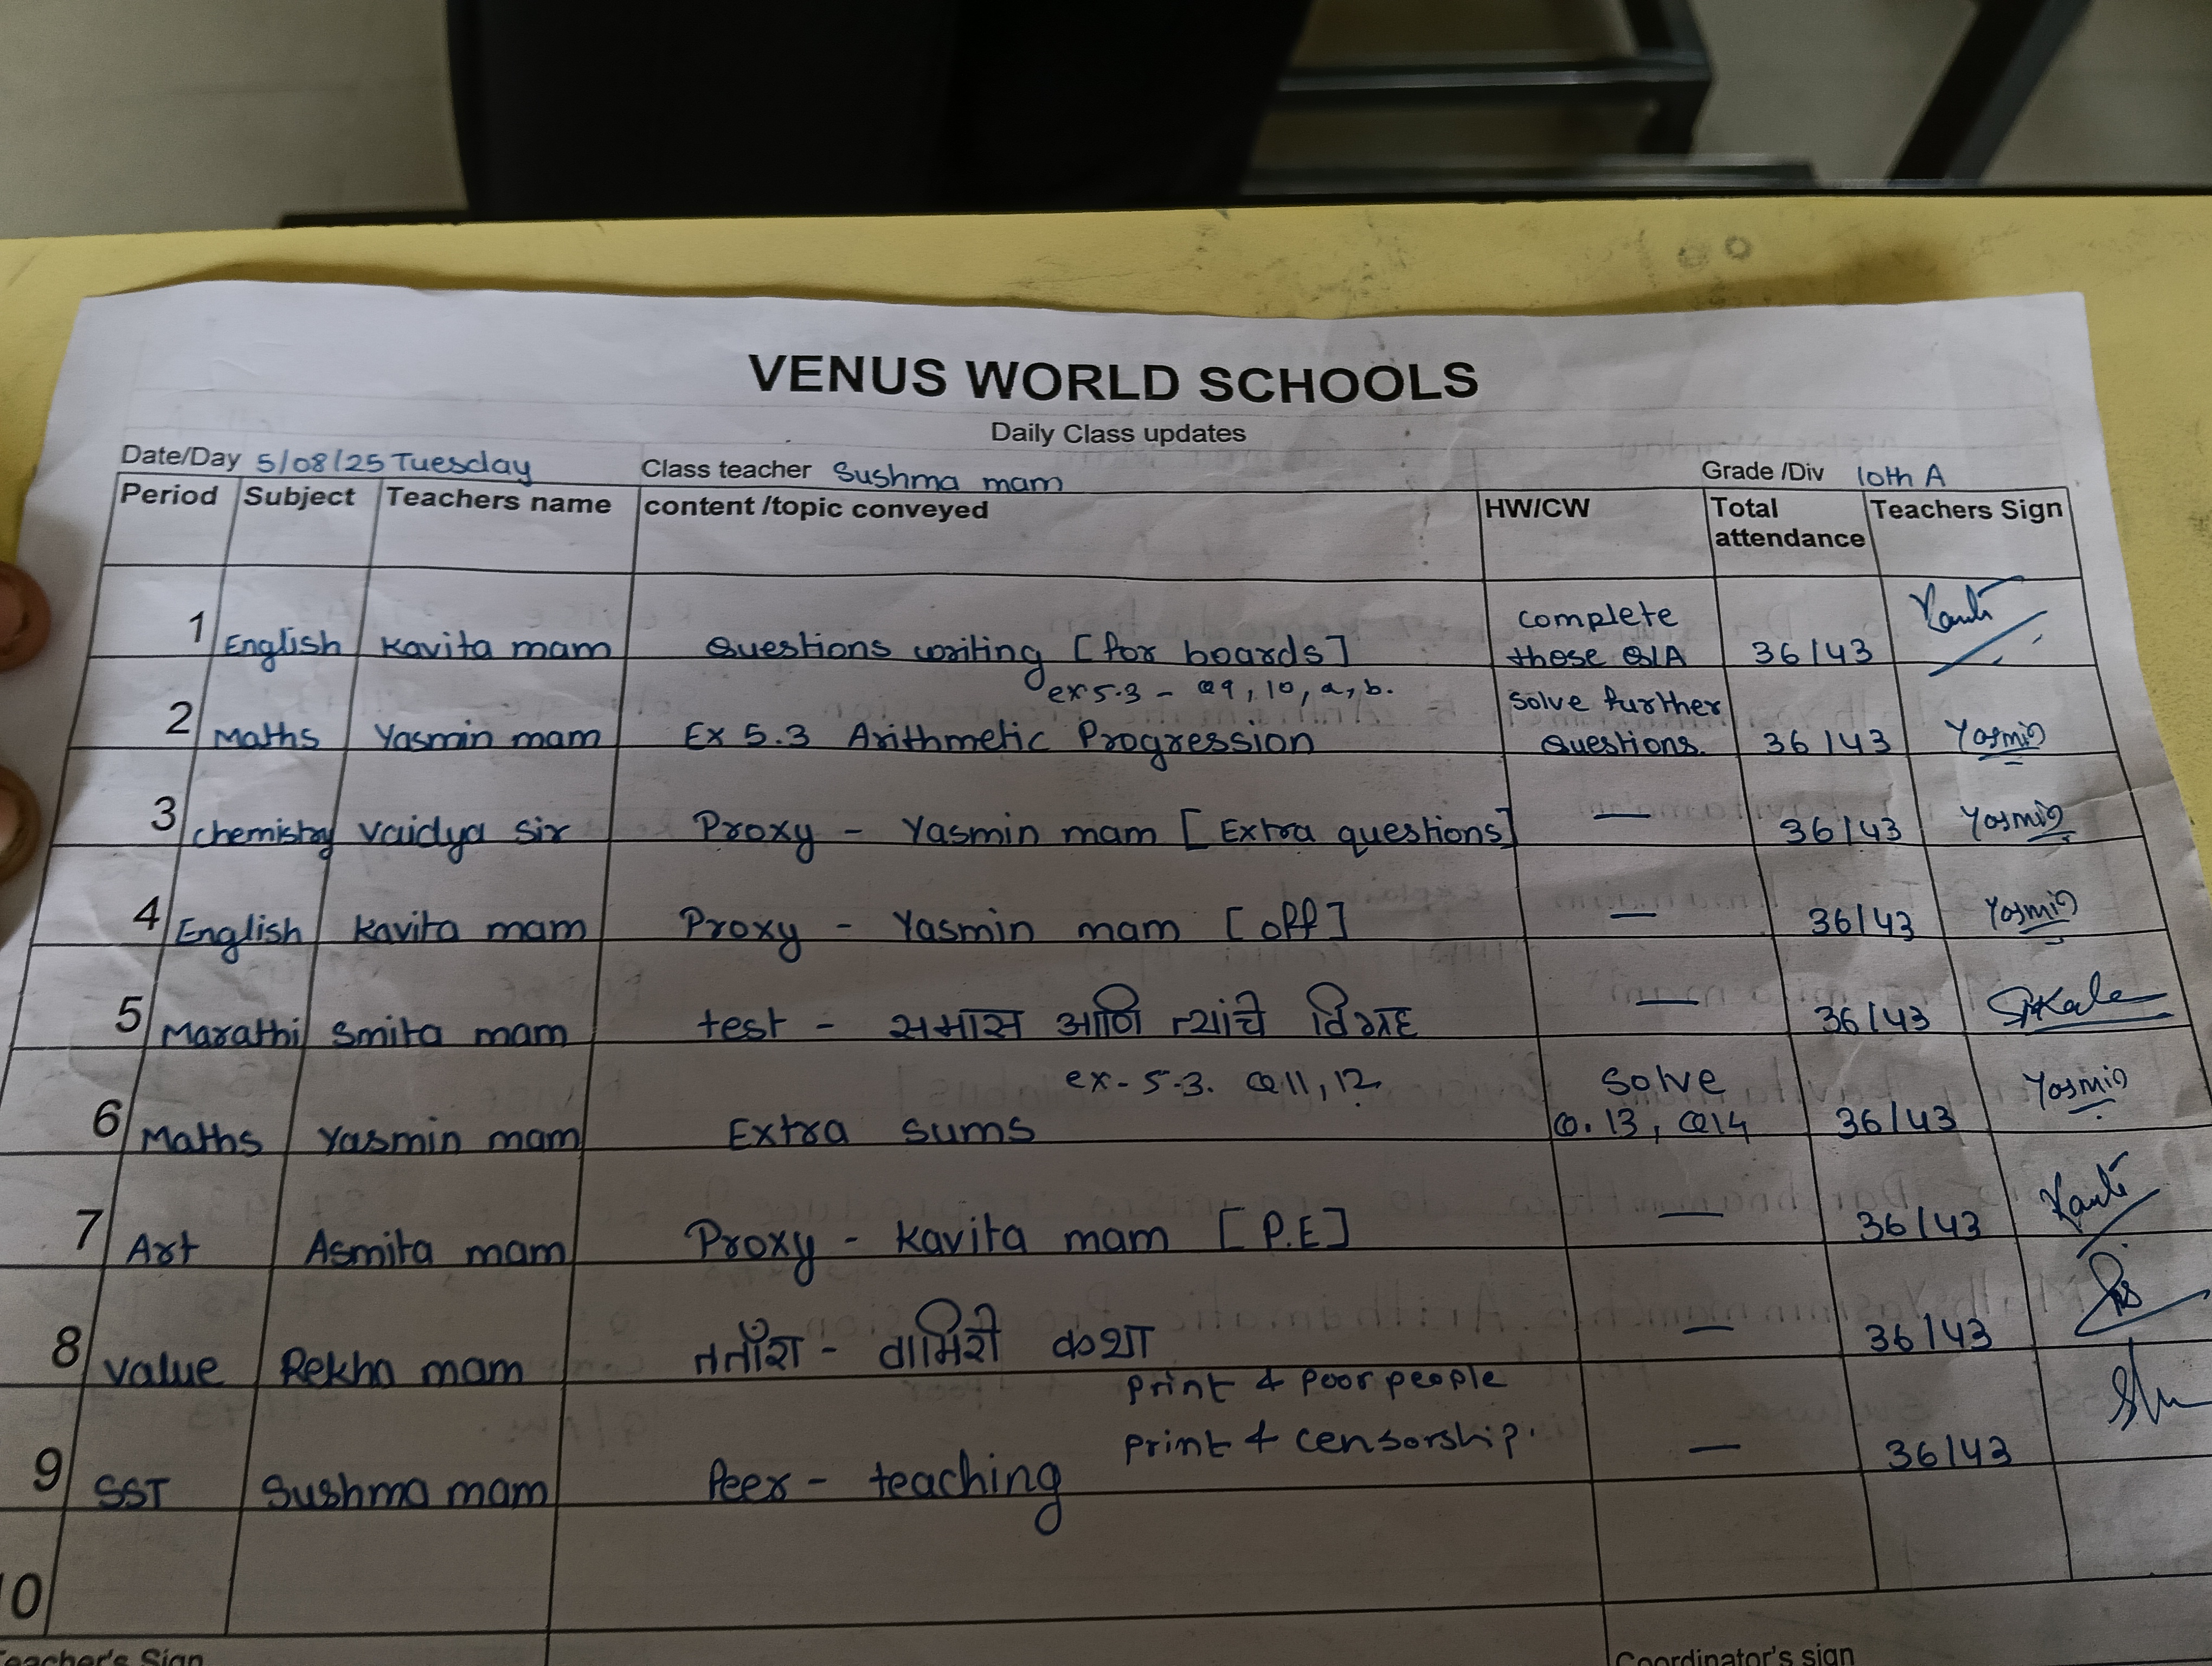 VENUS WORLD SCHOOLS
Daily Class updates
Date/Day 5/08/25 Tuesday Class teacher Sushma mam Grade /Div 10th A
Period Subject Teachers name content /topic conveyed HW/CW Total attendance Teachers Sign
1 English Kavita mam Questions writing [for boards] complete those Q/A 36/43
ex 5.3 - Q9, 10, a, b.
2 Maths Yasmin mam Ex 5.3 Arithmetic Progression solve further Questions. 36/43 Yasmin
3 chemistry vaidya sir Proxy - Yasmin mam [Extra questions] — 36/43 Yasmin
4 English Kavita mam Proxy - Yasmin mam [off] — 36/43 Yasmin
5 Marathi Smita mam test - समास आणि त्यांचे विग्रह — 36/43
ex - 5.3. Q11, 12
6 Maths Yasmin mam Extra sums Solve Q.13, Q14 36/43 Yasmin
7 Art Asmita mam Proxy - Kavita mam [P.E] — 36/43
8 value Rekha mam कथा — 36/43
print & poor people
print & censorship.
9 SST Sushma mam Peer - teaching — 36/43
10
Teacher's Sign Coordinator's sign